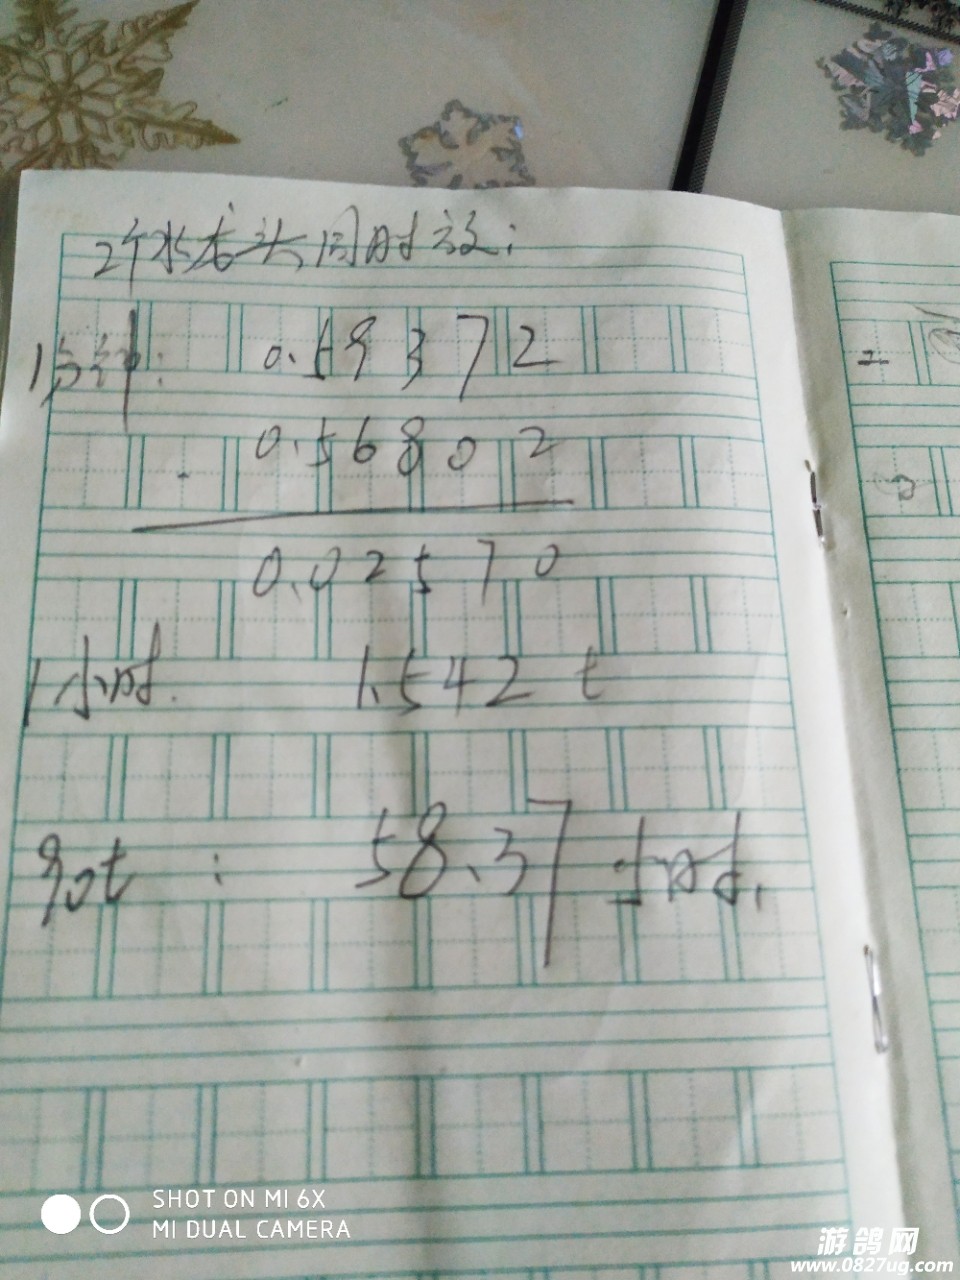 2个水龙头同时放:
1分钟: 0.59372
- 0.56802
0.02570
1小时. 1.542 t
90t : 58.37小时.
2
0
SHOT ON MI 6X
MI DUAL CAMERA
游鸽网
www.0827ug.com